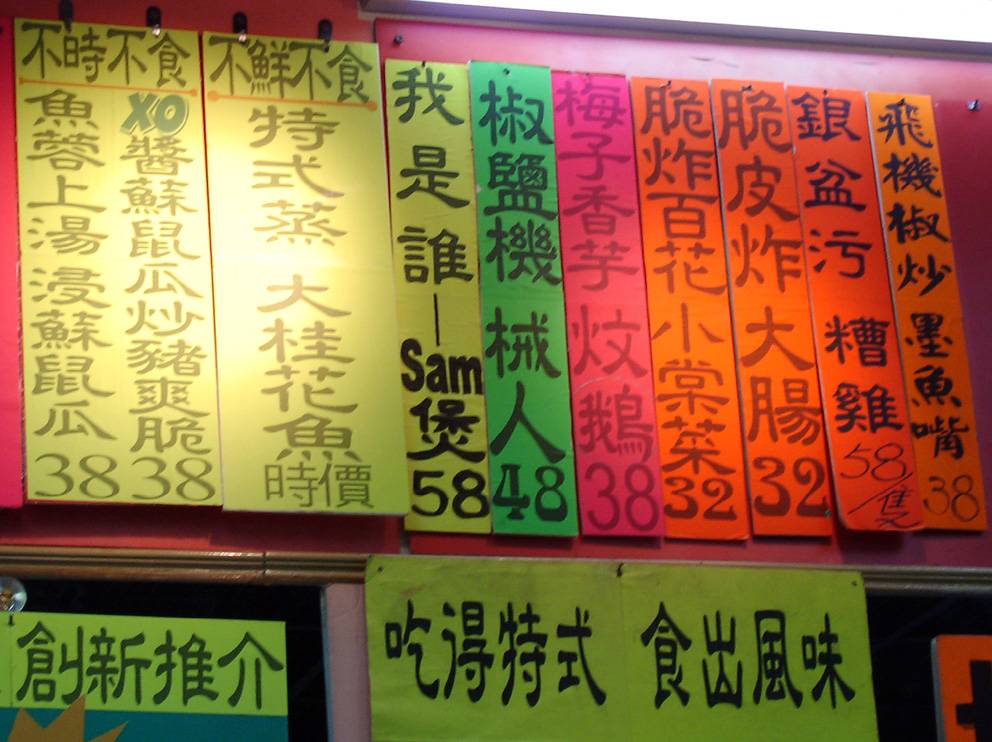 不時不食
魚蓉上湯浸蘇鼠瓜38
XO醬蘇鼠瓜炒豬爽脆38
不鮮不食
特式蒸大桂花魚時價
我是誰—Sam煲58
椒鹽機械人48
梅子香芋炆鵝38
脆炸百花小棠菜32
脆皮炸大腸32
銀盆污糟雞58隻
飛機椒炒墨魚嘴38
創新推介
吃得特式 食出風味